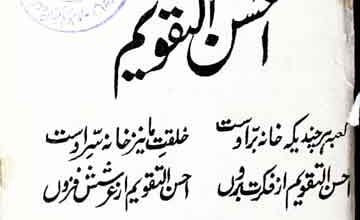 احسن التقویم
کعبه هرچندیکه خانه برّ اوست خلقت ما نیز خانه سرّ اوست
احسن التقویم از فکرت برون احسن التقویم از عرشش فزون